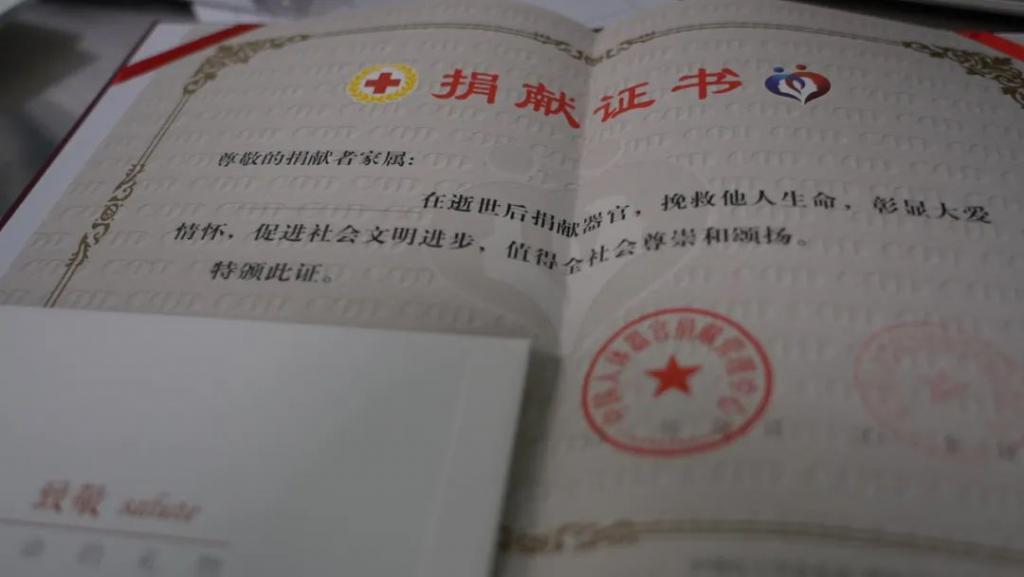 捐献证书
尊敬的捐献者家属：
在逝世后捐献器官，挽救他人生命，彰显大爱
情怀，促进社会文明进步，值得全社会尊崇和颂扬。
特颁此证。
中国人体器官捐献管理中心
致敬 salute